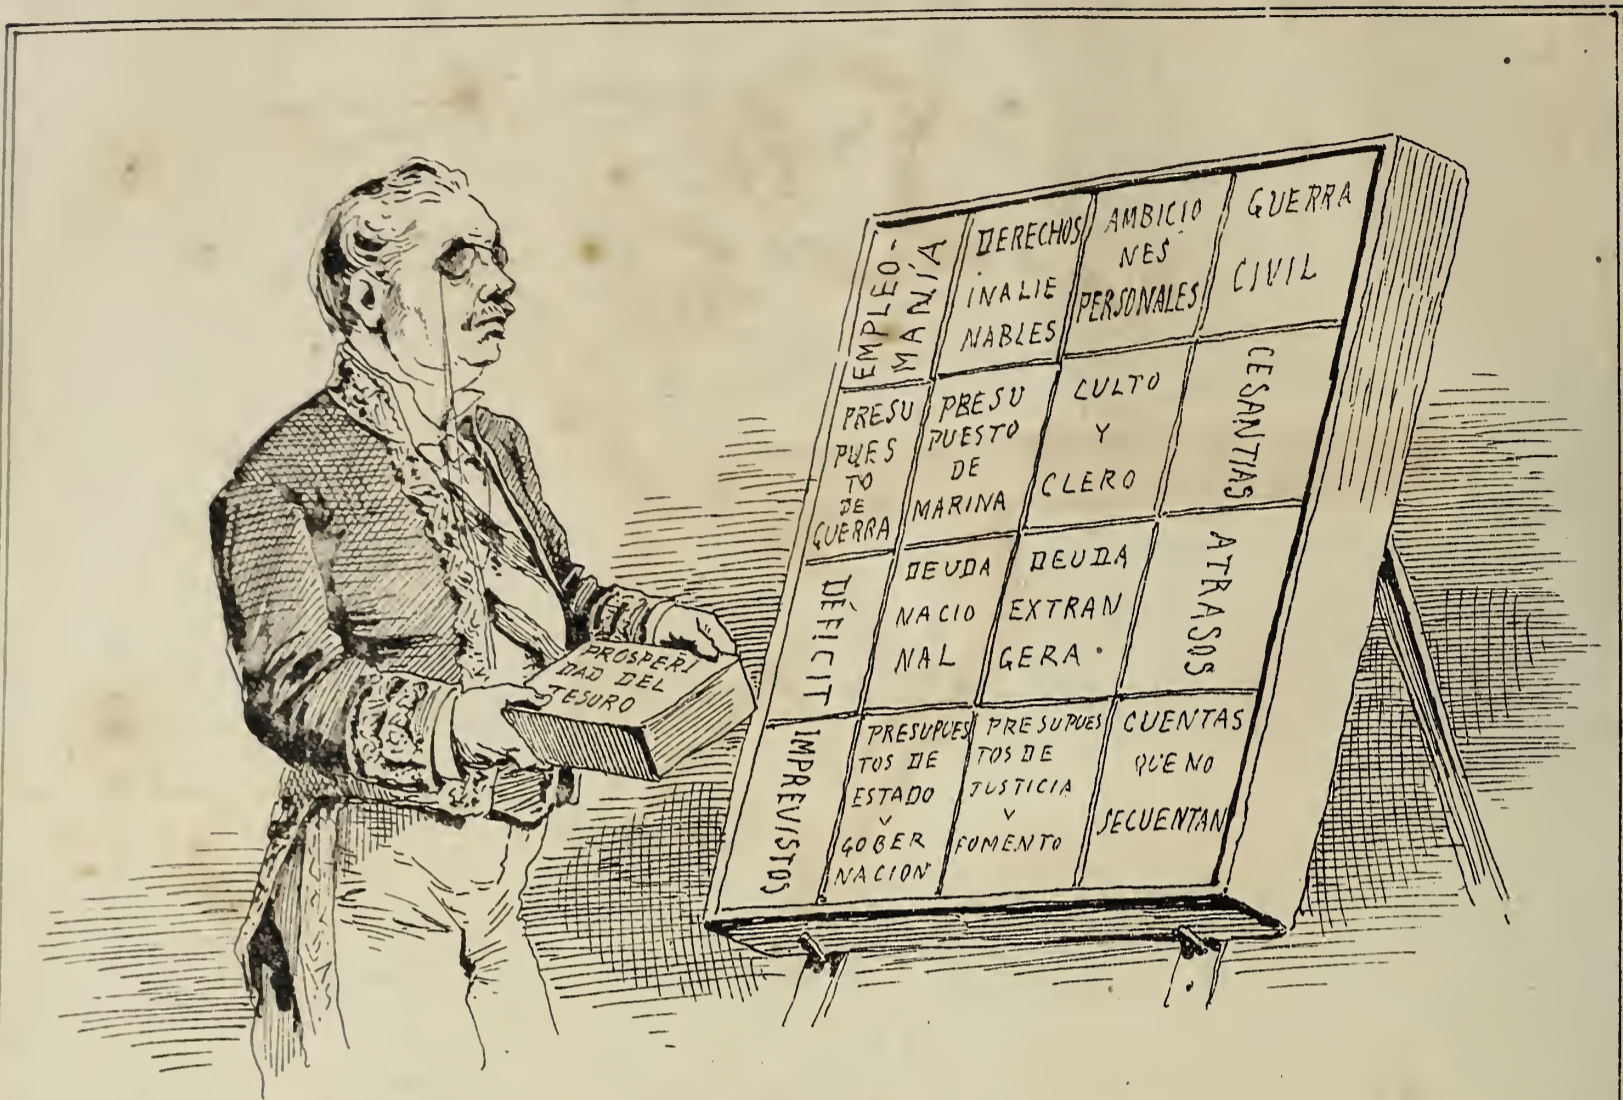 EMPLEO-
MANÍA
DERECHOS
INALIE
NABLES
AMBICIO
NES
PERSONALES
GUERRA
CIVIL
PRESU
PUES
TO
DE
GUERRA
PRESU
PUESTO
DE
MARINA
CULTO
Y
CLERO
CESANTIAS
DÉFICIT
DEUDA
NACIO
NAL
DEUDA
EXTRAN
GERA.
ATRASOS
IMPREVISTOS
PRESUPUES
TOS DE
ESTADO
Y
GOBER
NACION
PRESUPUES
TOS DE
JUSTICIA
Y
FOMENTO
CUENTAS
QUE NO
SECUENTAN
PROSPERI
DAD DEL
TESORO